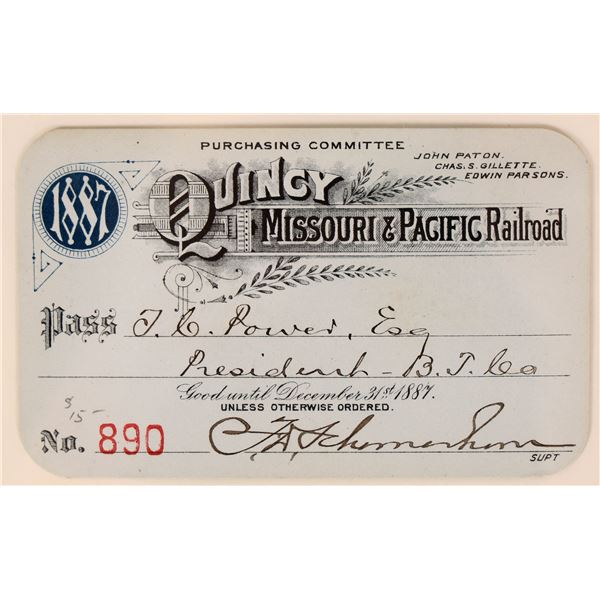 PURCHASING COMMITTEE
JOHN PATON.
CHAS. S. GILLETTE.
EDWIN PARSONS.
1887
QUINCY
MISSOURI & PACIFIC Railroad
Pass T. C. Power, Esq
President - B. T. Co
Good until December 31st 1887.
UNLESS OTHERWISE ORDERED.
$15-
No. 890
SUPT